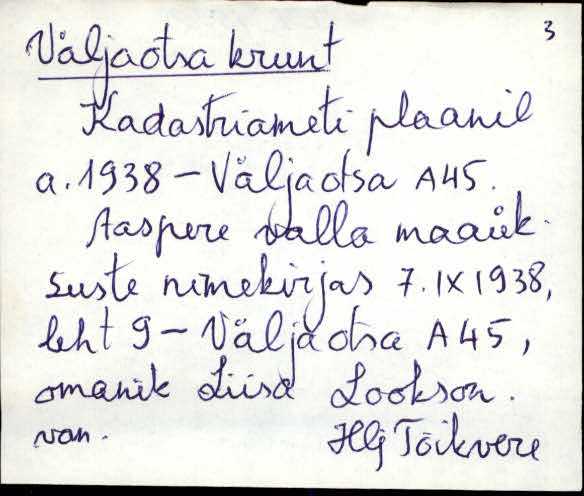 3
Väljaotsa krunt
Kadastriameti plaanil
a. 1938 – Väljaotsa A45.
Aaspere valla maaük-
suste nimekirjas 7. IX 1938,
leht 9 – Väljaotsa A45,
omanik Liisa Lookson.
van. Hlj Tõikvere